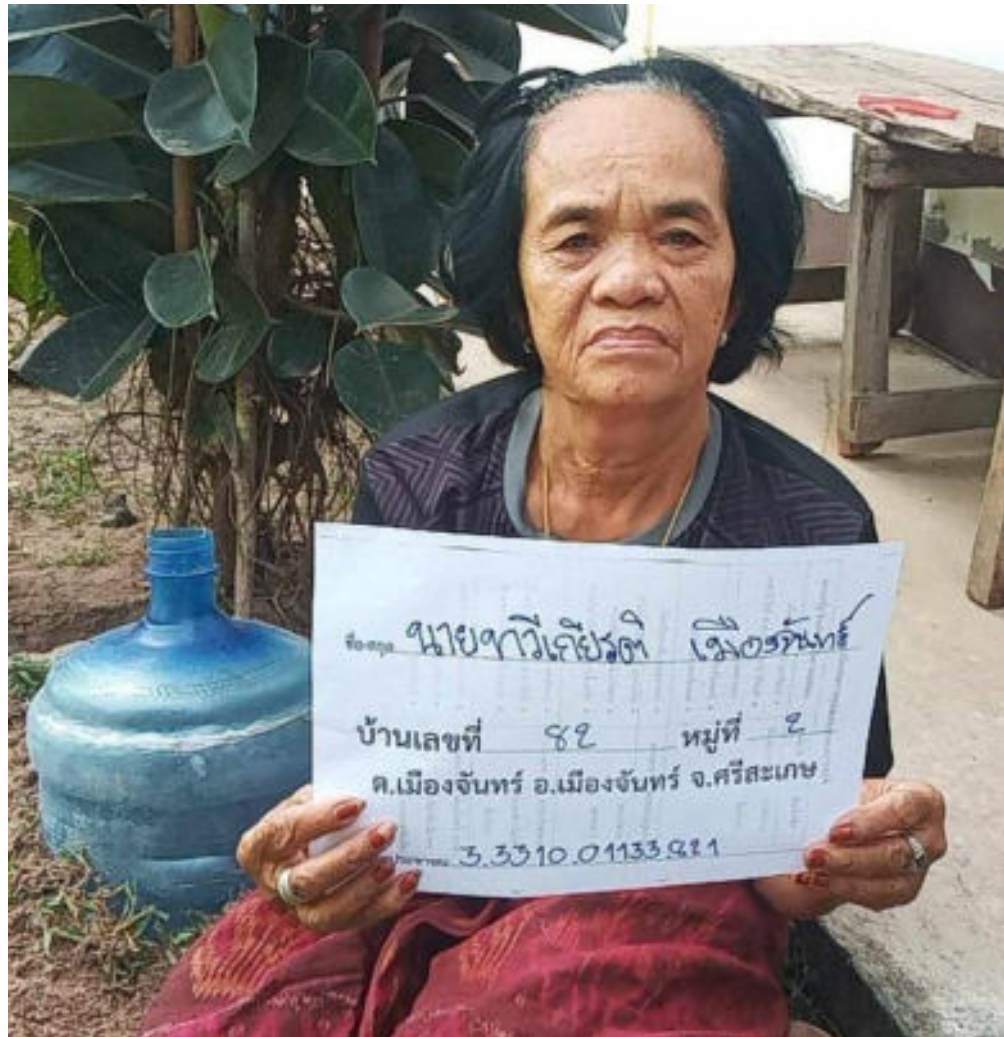 ชื่อสกุล นายทวีเกียรติ เมืองจันทร์
บ้านเลขที่ 82 หมู่ที่ 2
ต.เมืองจันทร์ อ.เมืองจันทร์ จ.ศรีสะเกษ
ประชาชน 3.3310.01133.821